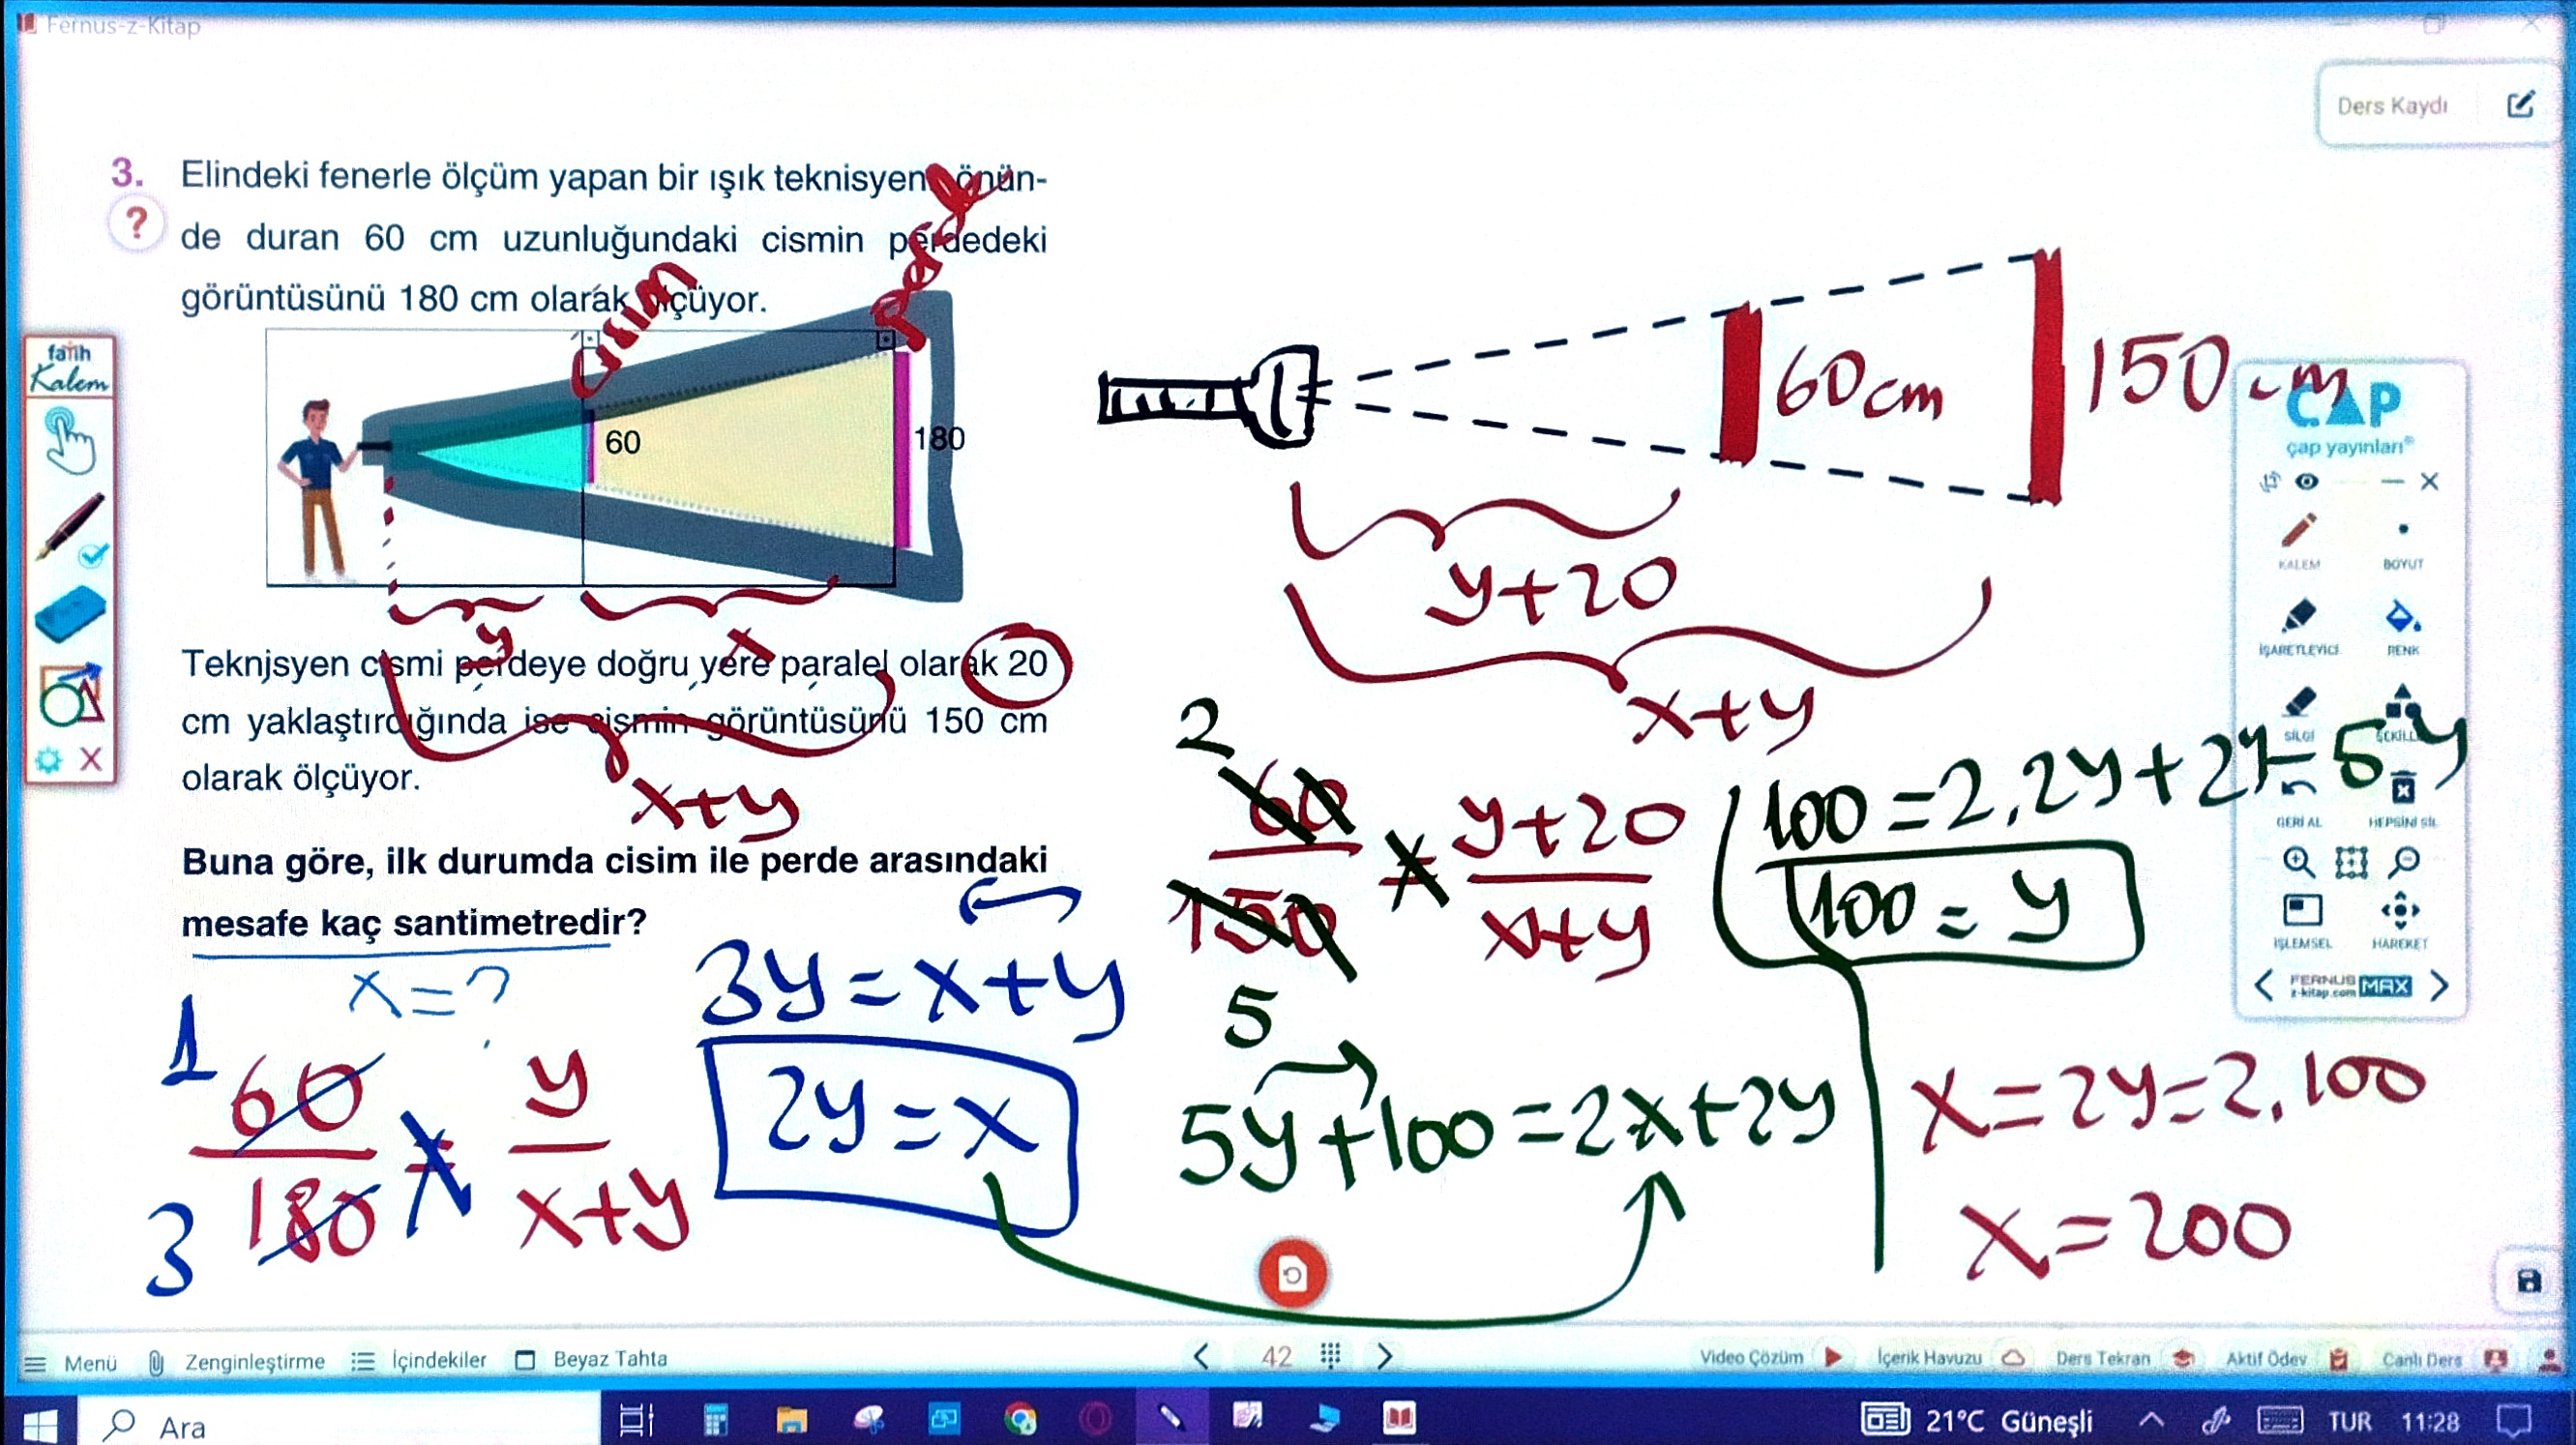 Fernus-z-Kitap
Ders Kaydı
3. Elindeki fenerle ölçüm yapan bir ışık teknisyen önün-
? de duran 60 cm uzunluğundaki cismin perdedeki
görüntüsünü 180 cm olarak ölçüyor.
cisim
perde
60
180
y
x
x+y
Teknisyen cismi perdeye doğru yere paralel olarak 20
cm yaklaştırdığında ise cismin görüntüsünü 150 cm
olarak ölçüyor.
Buna göre, ilk durumda cisim ile perde arasındaki
mesafe kaç santimetredir?
x=?
1
60
180
3
=
y
x+y
3y=x+y
2y=x
60cm
150cm
y+20
x+y
2
60
150
5
=
y+20
x+y
5y+100=2x+2y
100=2.2y+2y-5y
100=y
x=2y=2.100
x=200
fatih
Kalem
ÇAP
çap yayınları®
KALEM
BOYUT
İŞARETLEYİCİ
RENK
SİLGİ
ŞEKİLL
GERİ AL
HEPSİNİ SİL
İŞLEMSEL
HAREKET
FERNUS
z-kitap.com
MAX
Menü
Zenginleştirme
İçindekiler
Beyaz Tahta
42
Video Çözüm
İçerik Havuzu
Ders Tekran
Aktif Ödev
Canlı Ders
Ara
21°C Güneşli
TUR
11:28